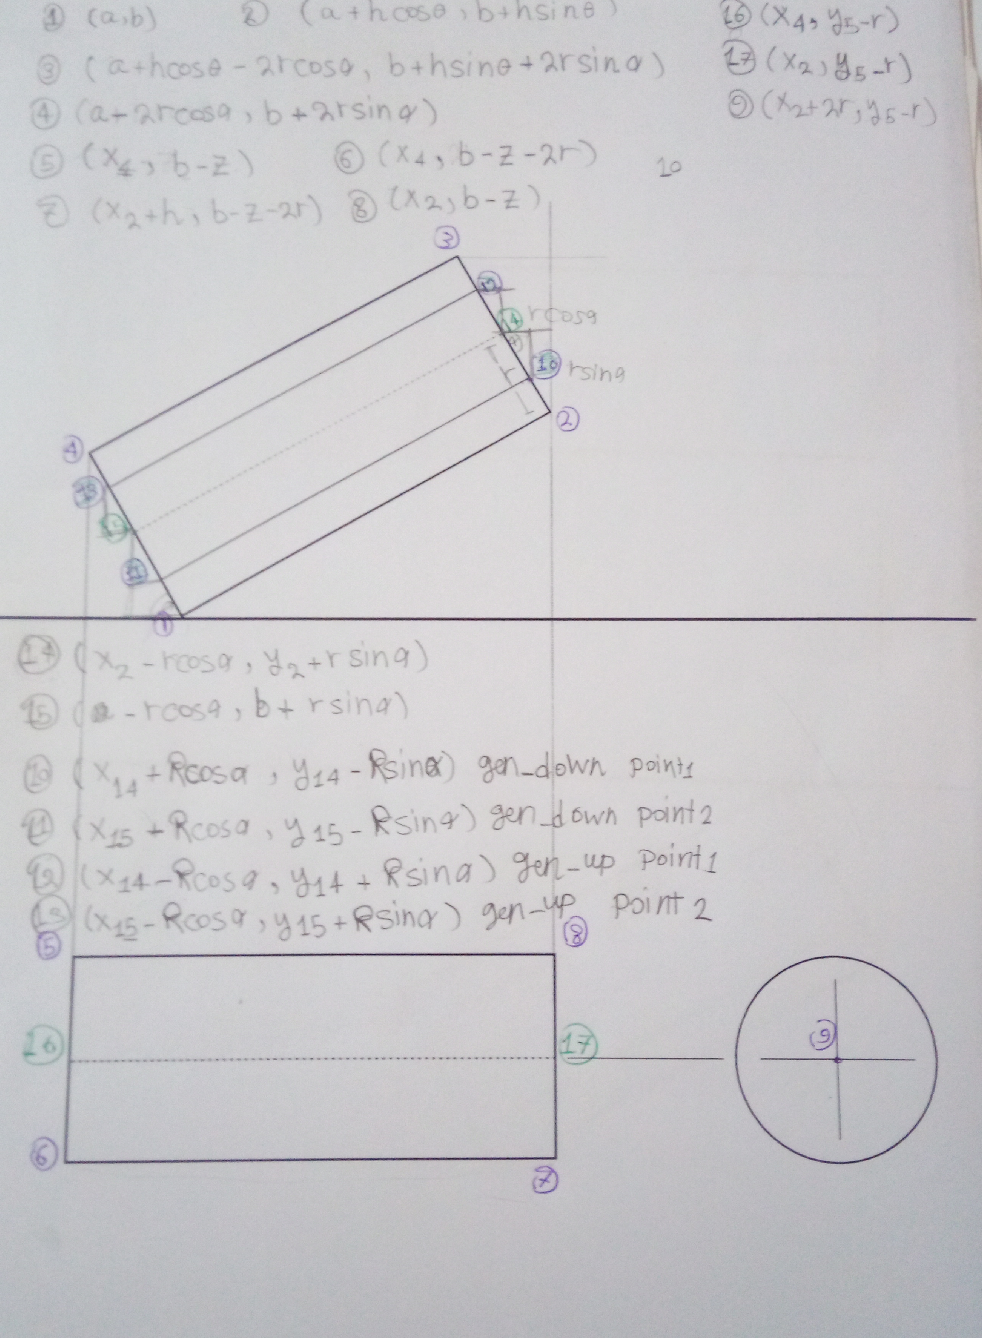 ① (a,b) ② (a+hcosθ, b+hsinθ)
③ (a+hcosθ-2rcosα, b+hsinθ+2rsinα)
④ (a-2rcosα, b+2rsinα)
⑤ (x4, b-z) ⑥ (x4, b-z-2r)
⑦ (x2+h, b-z-2r) ⑧ (x2, b-z)
⑯ (x4, y5-r)
⑰ (x2, y5-r)
⑨ (x2+2r, y5-r)
10
③
12
14 rcosα
α
r
10 rsinα
②
④
13
15
11
①
⑭ (x2-rcosα, y2+rsinα)
⑮ (a-rcosα, b+rsinα)
⑩ (x14+Rcosα, y14-Rsinα) gen_down point1
⑪ (x15+Rcosα, y15-Rsinα) gen_down point2
⑫ (x14-Rcosα, y14+Rsinα) gen-up point1
⑬ (x15-Rcosα, y15+Rsinα) gen-up point2
⑤ ⑧
⑯ ⑰ ⑨
⑥ ⑦